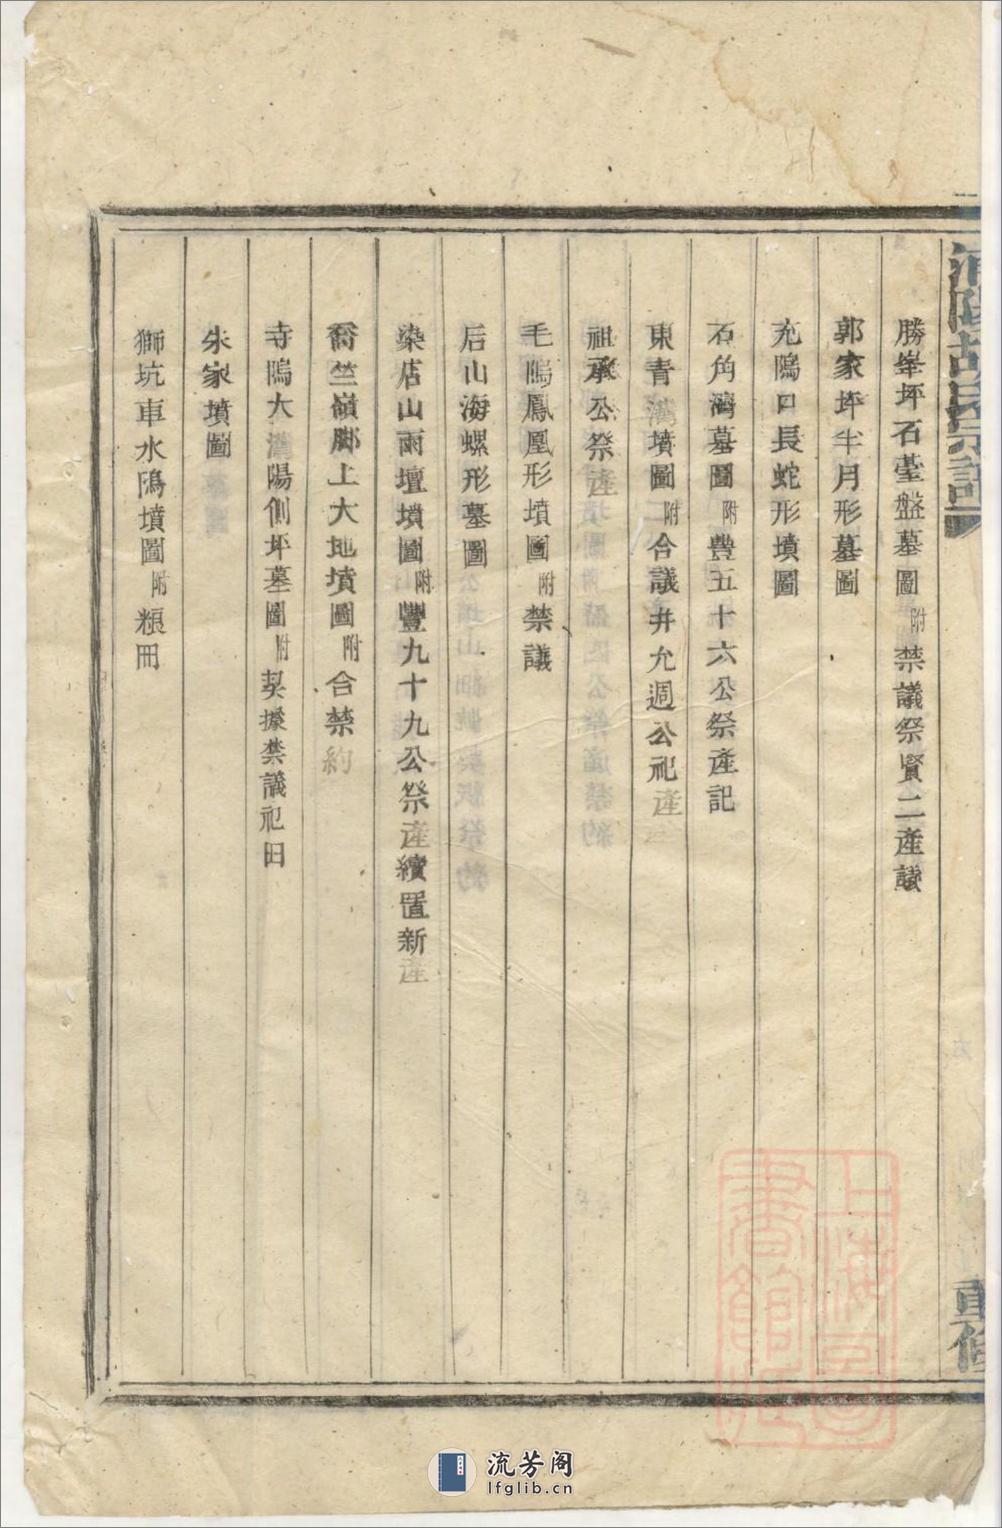 浦陽胡氏宗譜
重修
勝峯坪石蔓盤墓圖附禁議祭賢二產議
郭家坪半月形墓圖
充隖口長蛇形墳圖
石角灣墓圖附豊五十六公祭產記
東青灣墳圖附合議井允週公祀產
祖承公祭產
毛隖鳳凰形墳圖附禁議
后山海螺形墓圖
染店山兩壇墳圖附豐九十九公祭產續置新產
裔竺嶺脚上大地墳圖附合禁約
寺隖大灣陽側坪墓圖附契據禁議祀田
朱家墳圖
獅坑車水隖墳圖附糧冊
上海圖書館藏
流芳阁
lfglib.cn